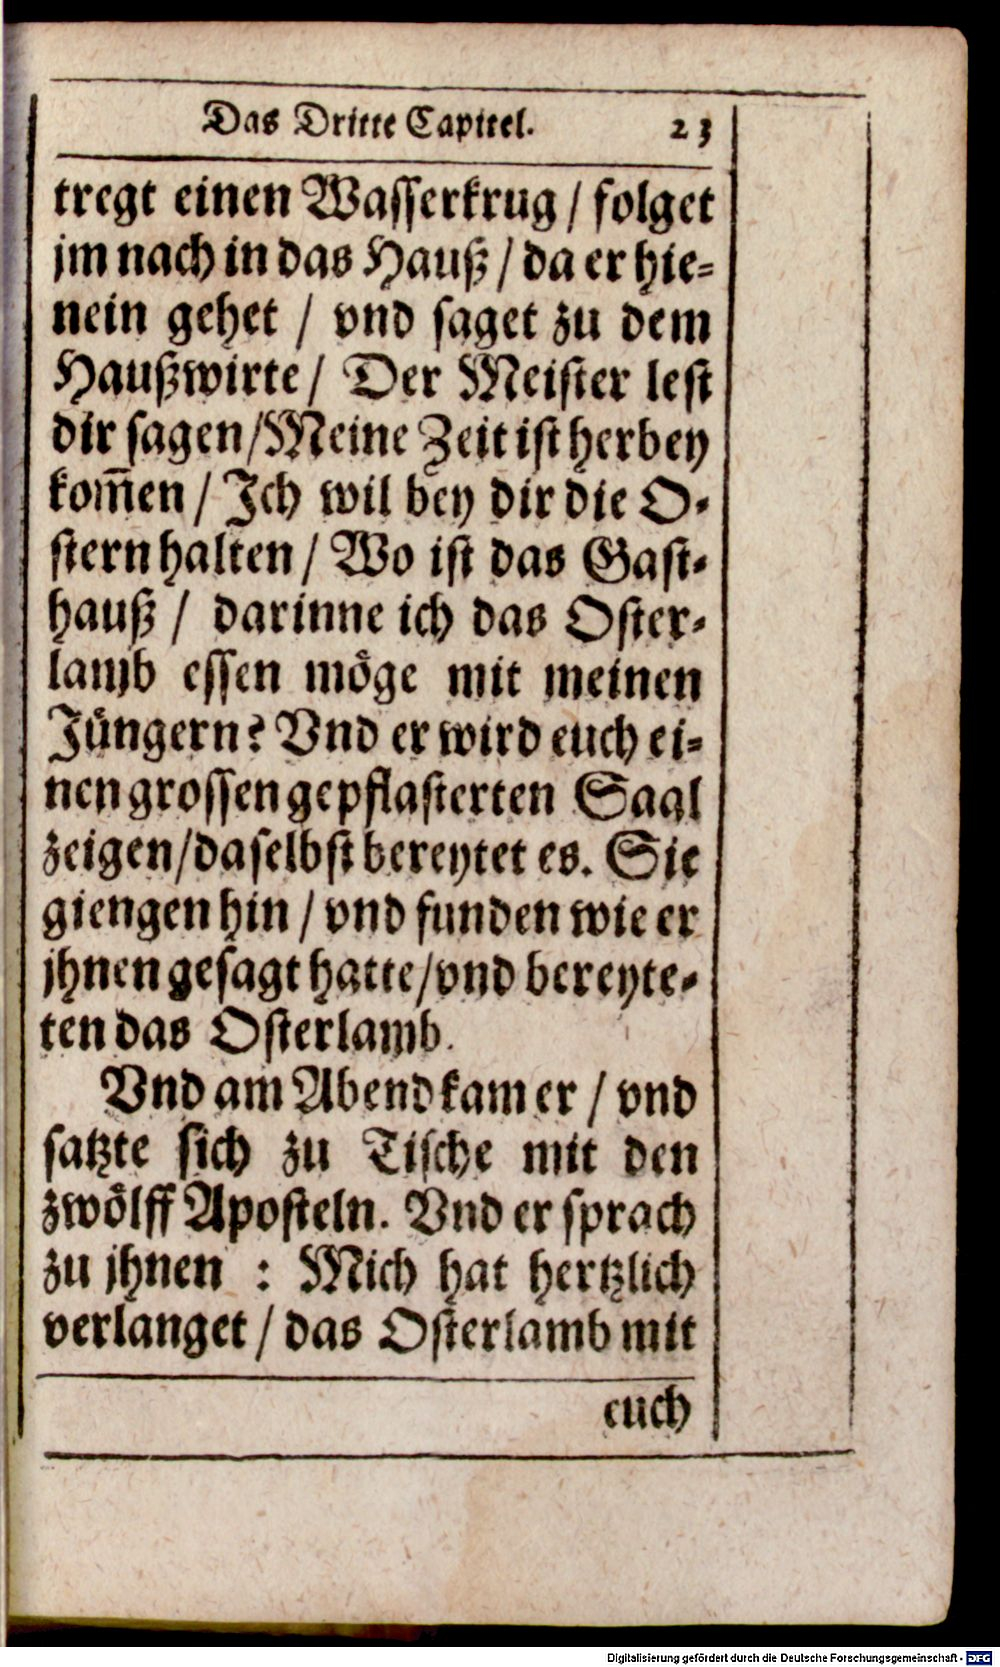 Das Dritte Capitel. 23
tregt einen Wasserkrug / folget
jm nach in das Hauß / da er hie=
nein gehet / vnd saget zu dem
Haußwirte / Der Meister lest
dir sagen / Meine Zeit ist herbey
kom̅en / Ich wil bey dir die O=
stern halten / Wo ist das Gast=
hauß / darinne ich das Oster=
lamb essen möge mit meinen
Jüngern? Vnd er wird euch ei=
nen grossen gepflasterten Saal
zeigen / daselbst bereytet es. Sie
giengen hin / vnd funden wie er
jhnen gesagt hatte / vnd bereyte=
ten das Osterlamb.
Vnd am Abend kam er / vnd
satzte sich zu Tische mit den
zwölff Aposteln. Vnd er sprach
zu jhnen : Mich hat hertzlich
verlanget / das Osterlamb mit
euch
Digitalisierung gefördert durch die Deutsche Forschungsgemeinschaft - DFG